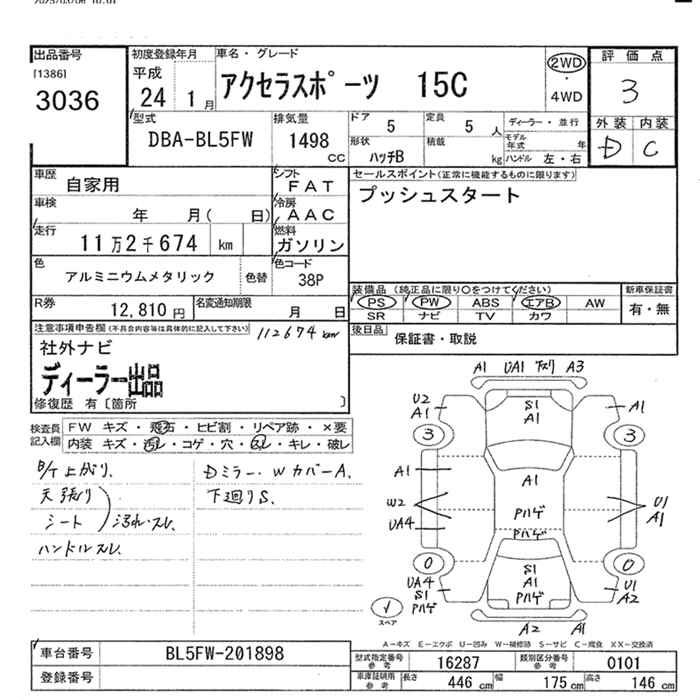 出品番号
[1386]
3036
初度登録年月
平成
24 1月
車名・グレード
アクセラスポーツ 15C
2WD
・
4WD
評価点
3
外装 内装
D C
型式
DBA-BL5FW
排気量
1498
CC
ドア 5
形状 ハッチB
定員 5 人
積載 kg
ディーラー・並行
モデル年式 年
ハンドル 左・右
車歴 自家用
シフト FAT
車検 年 月( 日)
冷房 AAC
走行 11万2千674 km
燃料 ガソリン
色 アルミニウムメタリック
色替
色コード 38P
R券 12,810円
名変通知期限 月 日
セールスポイント(正常に機能するものに限ります)
プッシュスタート
装備品 (純正品に限り○をつけてください)
新車保証書
PS PW ABS エアB AW
SR ナビ TV カワ
有・無
後日品 保証書・取説
注意事項申告欄(不具合内容等は具体的に記入して下さい)
112674km
社外ナビ
ディーラー出品
修復歴 有〔箇所 〕
検査員記入欄
FW キズ・飛石・ヒビ割・リペア跡・×要
内装 キズ・汚レ・コゲ・穴・スレ・キレ・破レ
天張り
シート
ハンドルスレ
Dミラー・WカバーA.
下廻りS.
A1 UA1 下スリ A3
U2
A1
S1
A1
A1
3
3
A1
A1
W2
UA4
Pハゲ
Pハゲ
U1
A1
0
0
UA4
S1
Pハゲ
S1
A1
Pハゲ
U1
A2
スペア
A2 A1
A-キズ E-エクボ U-凹み W-補修跡 S-サビ C-腐食 XX-交換済
車台番号 BL5FW-201898
登録番号
型式指定番号 参考 16287
類別区分番号 参考 0101
車庫証明用 参考 長さ 446cm 幅 175cm 高さ 146cm